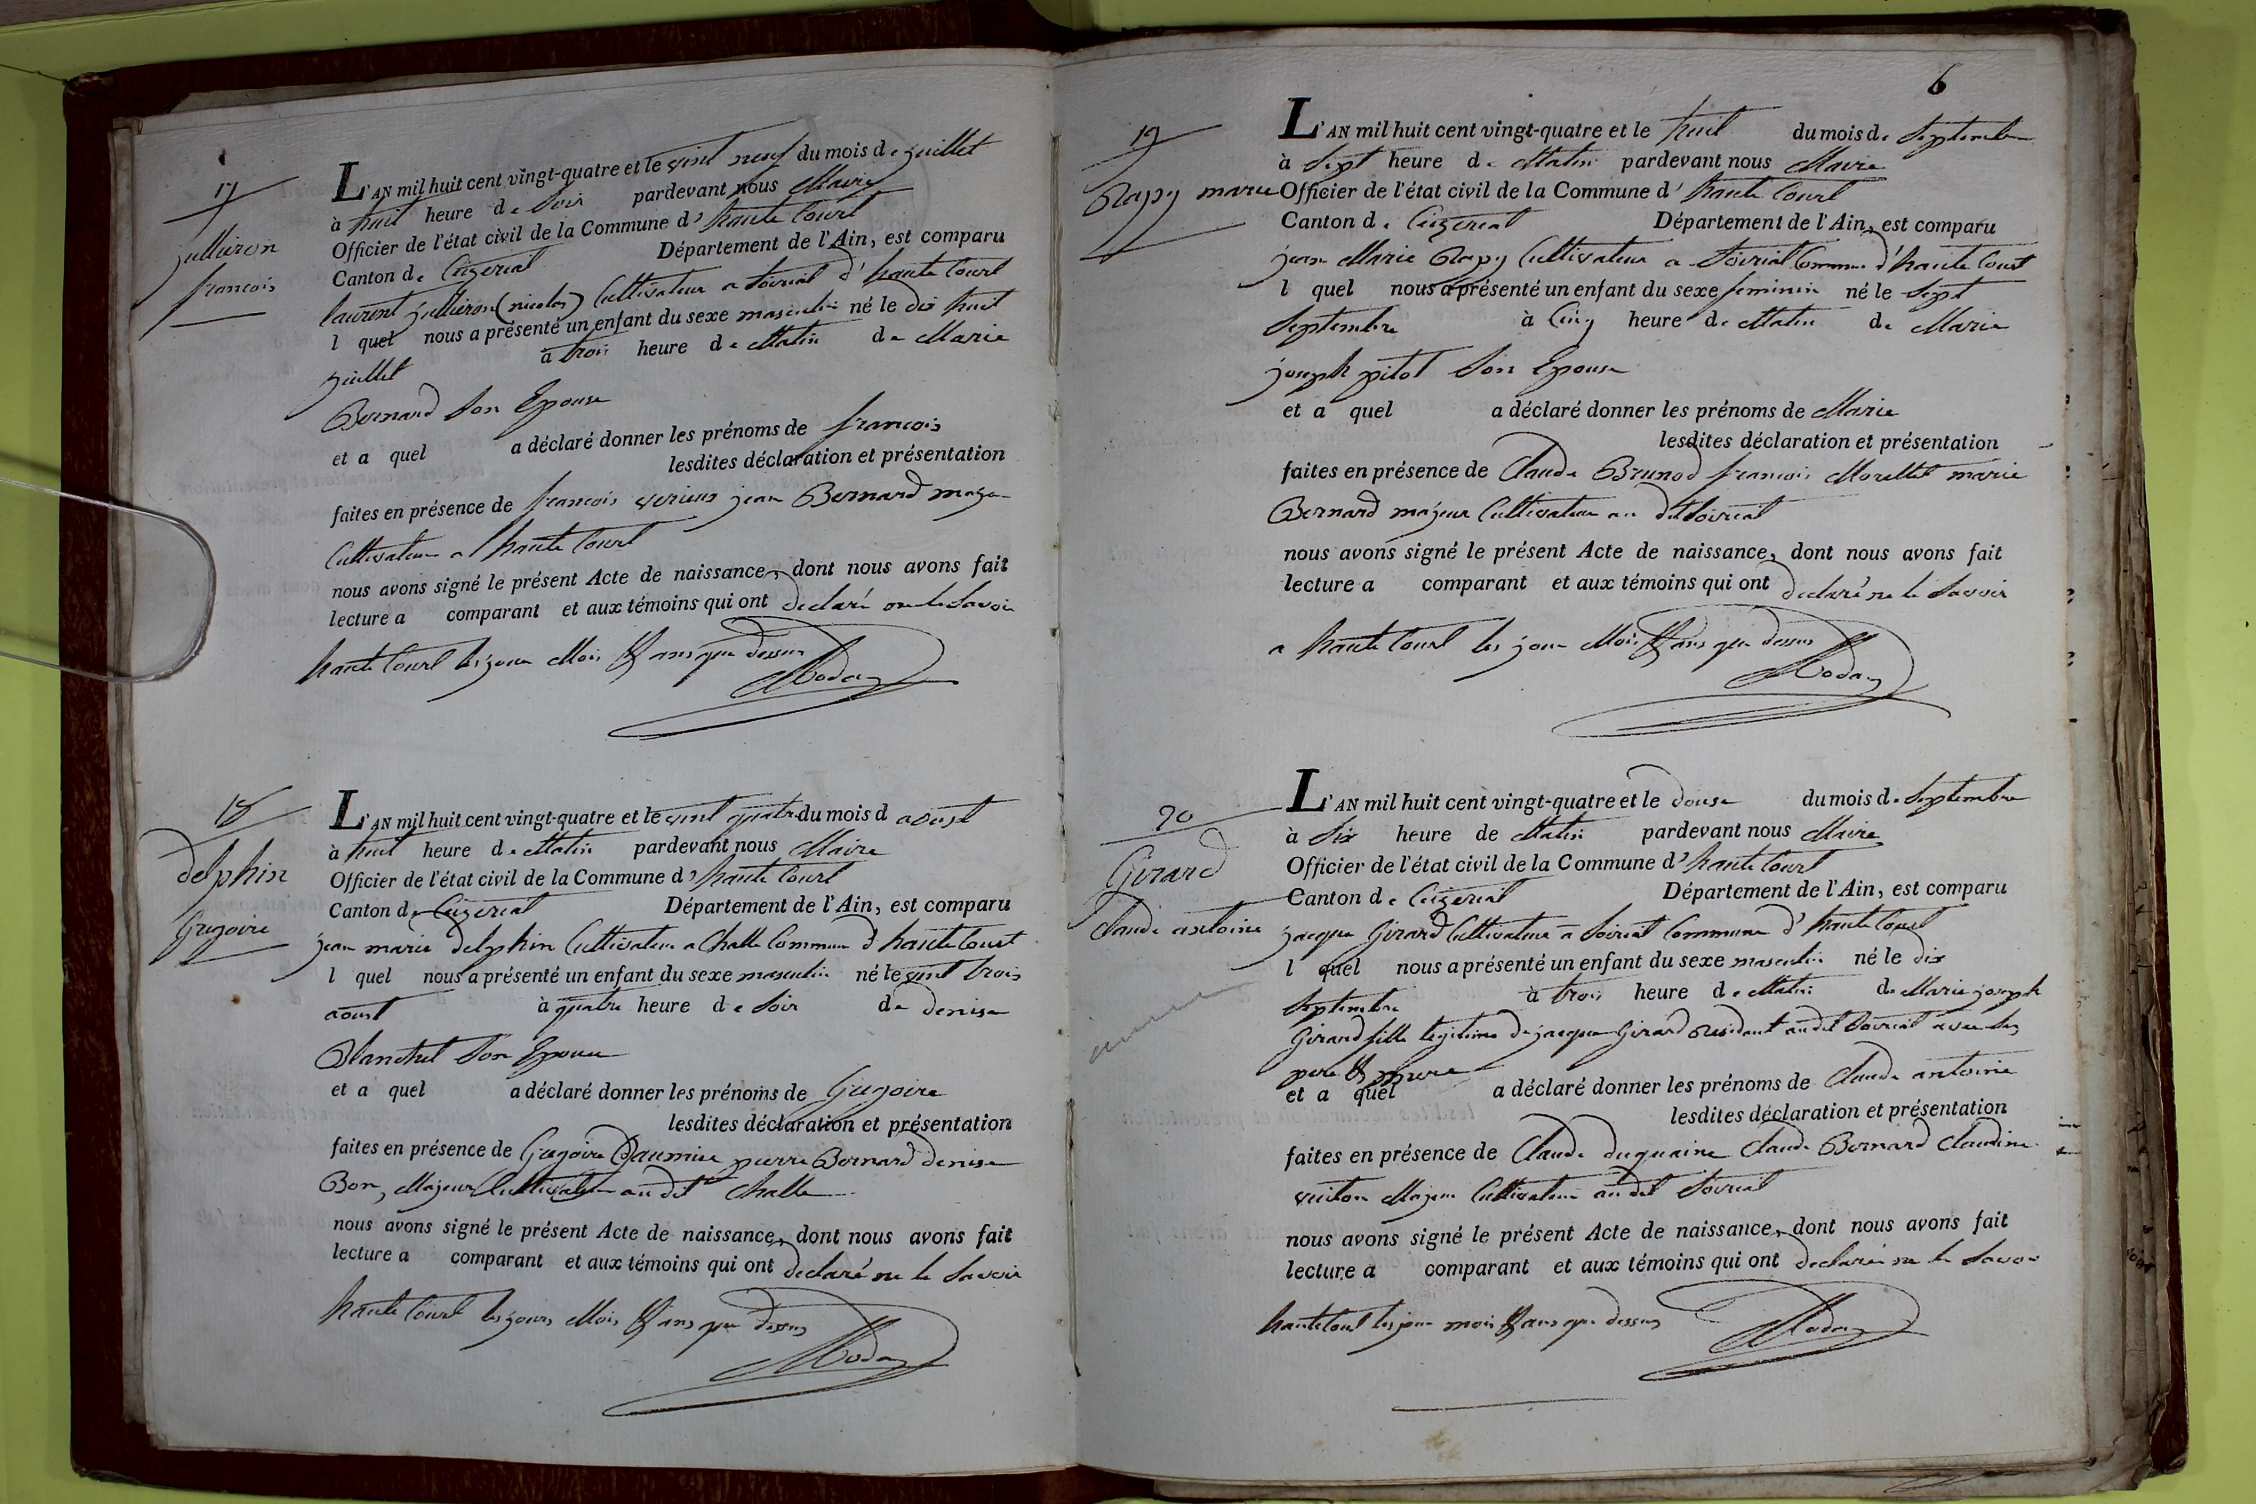 17
jullieron
francois
L'AN mil huit cent vingt-quatre et le vint neuf du mois de juillet
à huit heure de Soir pardevant nous Maire
Officier de l'état civil de la Commune d' haute Court
Canton de Ceizeriat Département de l'Ain, est comparu
laurent jullieron (nicolas) Cultivateur a Soiriat d' haute Court
l quel nous a présenté un enfant du sexe masculin né le dix huit
juillet à trois heure de Matin de Marie
Bernard Son Epouse
et a quel a déclaré donner les prénoms de francois
lesdites déclaration et présentation
faites en présence de francois jean Bernard
Cultivateur a haute Court
nous avons signé le présent Acte de naissance, dont nous avons fait
lecture a comparant et aux témoins qui ont declaré ne le Savoir
haute Court les jour Mois & ans que dessus
18
delphin
Gregoire
L'AN mil huit cent vingt-quatre et le vint quatre du mois d aoust
à huit heure de Matin pardevant nous Maire
Officier de l'état civil de la Commune d' haute Court
Canton de Ceizeriat Département de l'Ain, est comparu
jean marie delphin Cultivateur a Challe Commune d' haute Court
l quel nous a présenté un enfant du sexe masculin né le vint trois
aoust à quatre heure de Soir de denise
Blanchet Son Epouse
et a quel a déclaré donner les prénoms de Gregoire
lesdites déclaration et présentation
faites en présence de Gregoire pierre Bernard denise
Bon, Majeur Cultivateur au dit Challe
nous avons signé le présent Acte de naissance, dont nous avons fait
lecture a comparant et aux témoins qui ont declaré ne le Savoir
haute Court les jours Mois & ans que dessus
6
19
Rapy marie
L'AN mil huit cent vingt-quatre et le huit du mois de Septembre
à Sept heure de Matin pardevant nous Maire
Officier de l'état civil de la Commune d' haute Court
Canton de Ceizeriat Département de l'Ain, est comparu
jean Marie Rapy Cultivateur a Soiriat Commune d'haute Court
l quel nous a présenté un enfant du sexe feminin né le Sept
Septembre à Cinq heure de Matin de Marie
joseph pitot Son Epouse
et a quel a déclaré donner les prénoms de Marie
lesdites déclaration et présentation
faites en présence de Claude Brunod francois Morellet marie
Bernard majeur Cultivateur au dit Soiriat
nous avons signé le présent Acte de naissance, dont nous avons fait
lecture a comparant et aux témoins qui ont declaré ne le Savoir
a haute Court les jour Mois & ans que dessus
20
Girard
Claude antoine
L'AN mil huit cent vingt-quatre et le douse du mois de Septembre
à Six heure de Matin pardevant nous Maire
Officier de l'état civil de la Commune d' haute Court
Canton de Ceizeriat Département de l'Ain, est comparu
jacque Girard Cultivateur a Soiriat Commune d' haute Court
l quel nous a présenté un enfant du sexe masculin né le dix
Septembre à trois heure de Matin de Marie joseph
Girard fille legitime de jacque Girard residant au dit Soiriat avec Ses
pere & mere
et a quel a déclaré donner les prénoms de Claude antoine
lesdites déclaration et présentation
faites en présence de Claude duquaine Claude Bernard Claudine
Majeur Cultivateur au dit Soiriat
nous avons signé le présent Acte de naissance, dont nous avons fait
lecture a comparant et aux témoins qui ont declaré ne le Savoir
haute Court les jour mois & ans que dessus